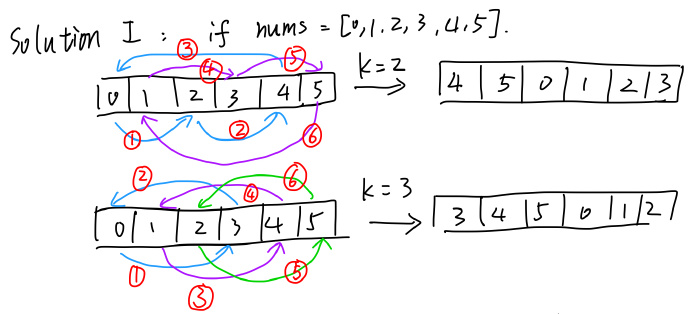 Solution I : if nums = [0,1,2,3,4,5].
③
④ ⑤
0 1 2 3 4 5 k=2 4 5 0 1 2 3
① ② ⑥
② ④ ⑥
0 1 2 3 4 5 k=3 3 4 5 0 1 2
① ③ ⑤